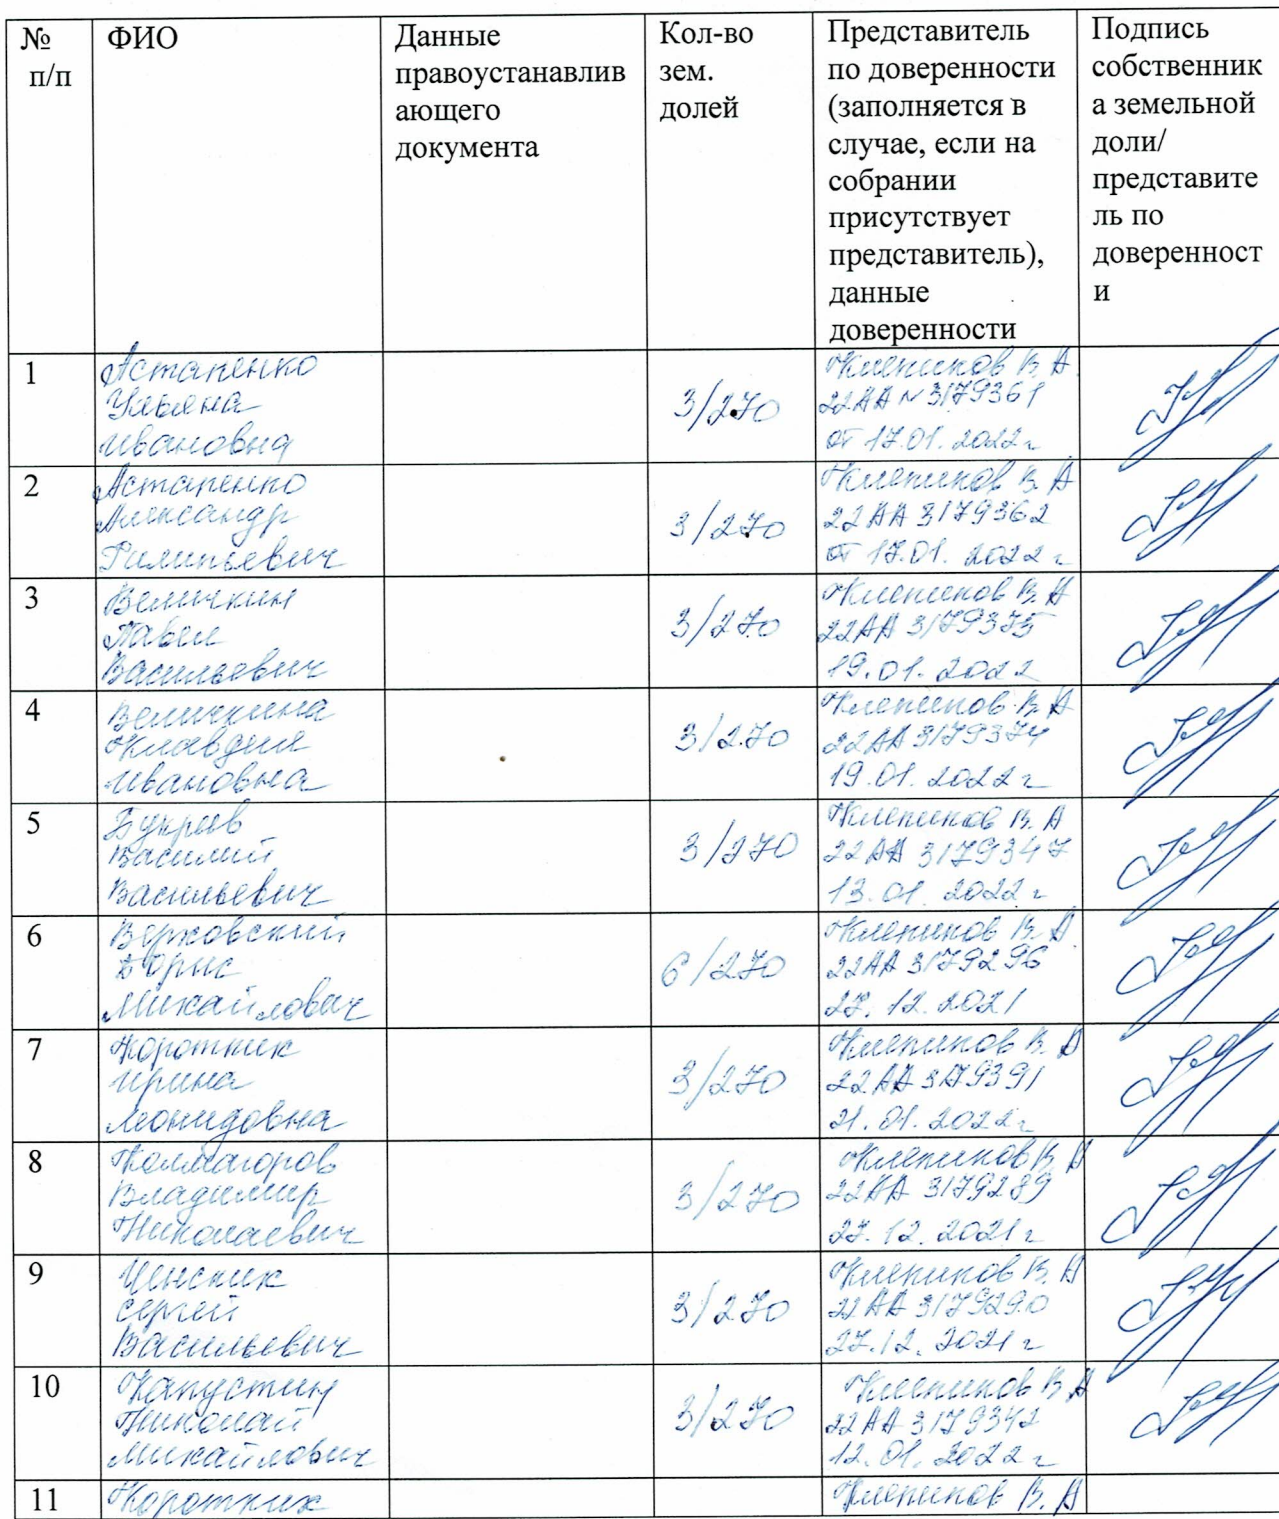 № п/п
ФИО
Данные
правоустанавлив
ающего
документа
Кол-во
зем.
долей
Представитель
по доверенности
(заполняется в
случае, если на
собрании
присутствует
представитель),
данные
доверенности
Подпись
собственник
а земельной
доли/
представите
ль по
доверенност
и
1
Астапенко
Ульяна
Ивановна
3/270
Клепиков В. А.
22АА № 3179361
от 17.01.2022 г
2
Астапенко
Александр
Филипьевич
3/270
Клепиков В. А
22АА 3179362
от 17.01.2022 г
3
Величкин
Павел
Васильевич
3/270
Клепиков В. А
22АА 3179375
19.01.2022
4
Величкина
Клавдия
Ивановна
3/270
Клепиков В. А
22АА 3179374
19.01.2022 г
5
Букрив
Василий
Васильевич
3/270
Клепиков В. А
22АА 3179347
13.01.2022 г
6
Верховский
Борис
Михайлович
6/270
Клепиков В. А
22АА 3179296
27.12.2021
7
Коротких
Ирина
Леонидовна
3/270
Клепиков В. А
22АА 3179391
21.01.2022 г
8
Колмагоров
Владимир
Николаевич
3/270
Клепиков В. А
22АА 3179289
27.12.2021 г
9
Сергей
Васильевич
3/270
Клепиков В. А
22АА 3179290
27.12.2021 г
10
Капустин
Николай
Михайлович
3/270
Клепиков В. А
22АА 3179342
12.01.2022 г
11
Коротких
Клепиков В. А